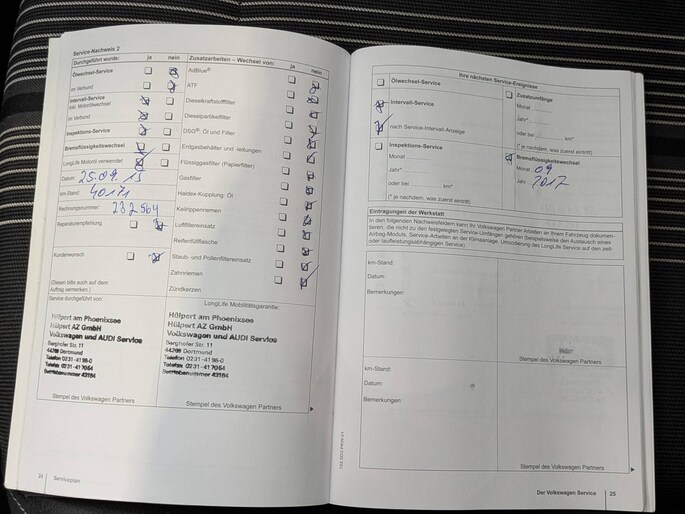 Service-Nachweis 2
Durchgeführt wurde: ja nein
Ölwechsel-Service
im Verbund
Intervall-Service
inkl. Motorölwechsel
im Verbund
Inspektions-Service
Bremsflüssigkeitswechsel
LongLife Motoröl verwendet
Datum: 25.09.15
km-Stand: 40171
Rechnungsnummer: 232564
Reparaturempfehlung
Kundenwunsch
(Diesen bitte auch auf dem
Auftrag vermerken.)
Service durchgeführt von:
Hülpert am Phoenixsee
Hülpert AZ GmbH
Volkswagen und AUDI Service
Berghofer Str. 11
44269 Dortmund
Telefon 0231-4196-0
Telefax 0231-417054
Betriebsnummer 43154
Stempel des Volkswagen Partners
Zusatzarbeiten – Wechsel von: ja nein
AdBlue®
ATF
Dieselkraftstofffilter
Dieselpartikelfilter
DSG®: Öl und Filter
Erdgasbehälter und -leitungen
Flüssiggasfilter (Papierfilter)
Gasfilter
Haldex-Kupplung: Öl
Keilrippenriemen
Luftfiltereinsatz
Reifenfüllflasche
Staub- und Pollenfiltereinsatz
Zahnriemen
Zündkerzen
LongLife Mobilitätsgarantie:
Hülpert am Phoenixsee
Hülpert AZ GmbH
Volkswagen und AUDI Service
Berghofer Str. 11
44269 Dortmund
Telefon 0231-4196-0
Telefax 0231-417054
Betriebsnummer 43154
Stempel des Volkswagen Partners
24 Serviceplan
Ihre nächsten Service-Ereignisse
Ölwechsel-Service
Intervall-Service
nach Service-Intervall-Anzeige
Inspektions-Service
Monat
Jahr*
oder bei km*
(* je nachdem, was zuerst eintritt)
Zusatzumfänge
Monat
Jahr*
oder bei km*
(* je nachdem, was zuerst eintritt)
Bremsflüssigkeitswechsel
Monat 09
Jahr 2017
Eintragungen der Werkstatt
In den folgenden Nachweisfeldern kann Ihr Volkswagen Partner Arbeiten an Ihrem Fahrzeug dokumen-
tieren, die nicht zu den festgelegten Service-Umfängen gehören beispielsweise den Austausch eines
Airbag-Moduls, Service-Arbeiten an der Klimaanlage, Umcodierung des LongLife Service auf den zeit-
oder laufleistungsabhängigen Service).
km-Stand:
Datum:
Bemerkungen:
Stempel des Volkswagen Partners
km-Stand:
Datum:
Bemerkungen:
Stempel des Volkswagen Partners
Der Volkswagen Service 25